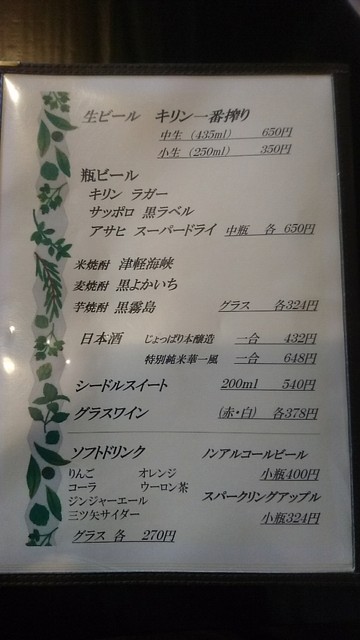 生ビール キリン一番搾り
中生 (435ml) 650円
小生 (250ml) 350円
瓶ビール
キリン ラガー
サッポロ 黒ラベル
アサヒ スーパードライ 中瓶 各 650円
米焼酎 津軽海峡
麦焼酎 黒よかいち
芋焼酎 黒霧島 グラス 各324円
日本酒 じょっぱり本醸造 一合 432円
特別純米華一風 一合 648円
シードルスイート 200ml 540円
グラスワイン (赤・白) 各378円
ソフトドリンク
りんご オレンジ
コーラ ウーロン茶
ジンジャーエール
三ツ矢サイダー
グラス 各 270円
ノンアルコールビール
小瓶400円
スパークリングアップル
小瓶324円